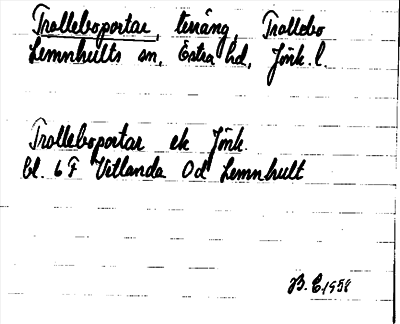 Trolleboportar, terräng, Trollebo
Lemnhults sn, Östra hd, Jönk. l.
Trolleboportar ek Jönk.
bl. 6 F Vetlanda Od Lemnhult
B. E 1958